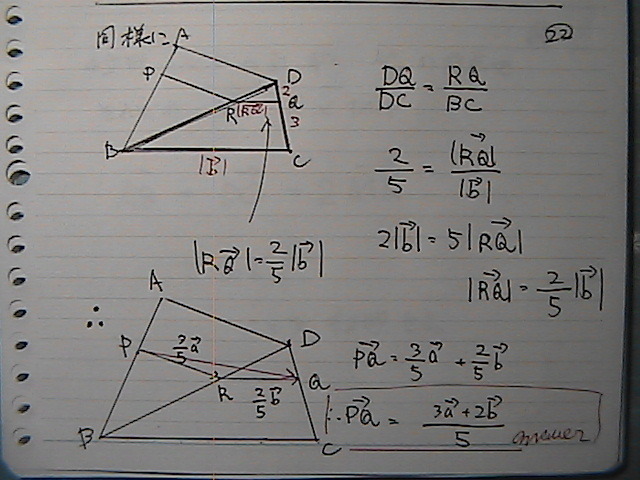 同様に
22
A
P
D
2
R |RQ→| Q
3
B
C
|b→|
DQ/DC = RQ/BC
2/5 = |RQ→|/|b→|
2|b→| = 5|RQ→|
|RQ→| = 2/5 |b→|
|RQ→| = 2/5 |b→|
∴
A
P
3/5 a→
D
R
2/5 b→
Q
B
C
PQ→ = 3/5 a→ + 2/5 b→
∴ PQ→ = (3a→ + 2b→)/5 answer